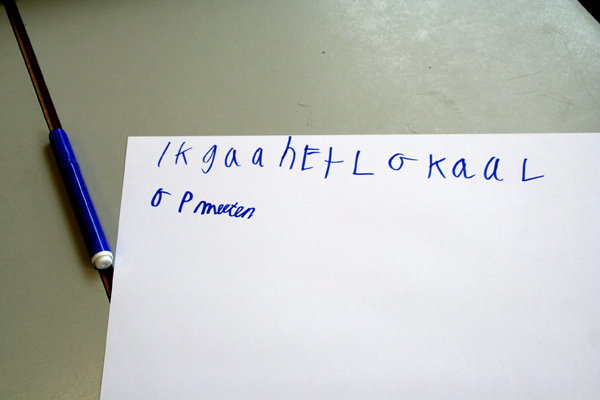 Ik gaa hEt LokaaL
oP meeten